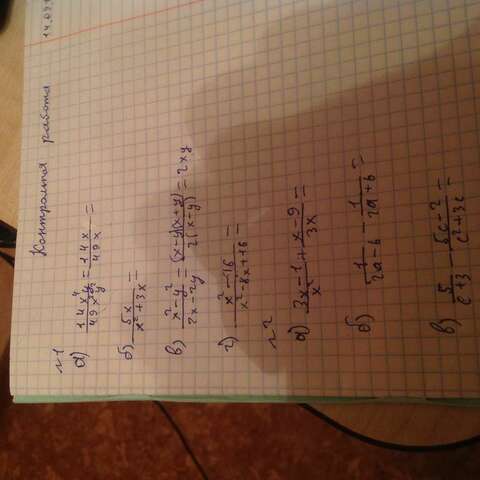 Контрольная работа
14.09.
№1
а) 14x⁴y/49x³y = 14x/49x =
б) 5x/x²+3x =
в) x²-y²/2x-2y = (x-y)(x+y)/2(x-y) = 2xy
г) x²-16/x²-8x+16 =
№2
а) 3x-1/x² + x-9/3x =
б) 1/2a-b - 1/2a+b =
в) 5/c+3 - 5c-2/c²+3c =